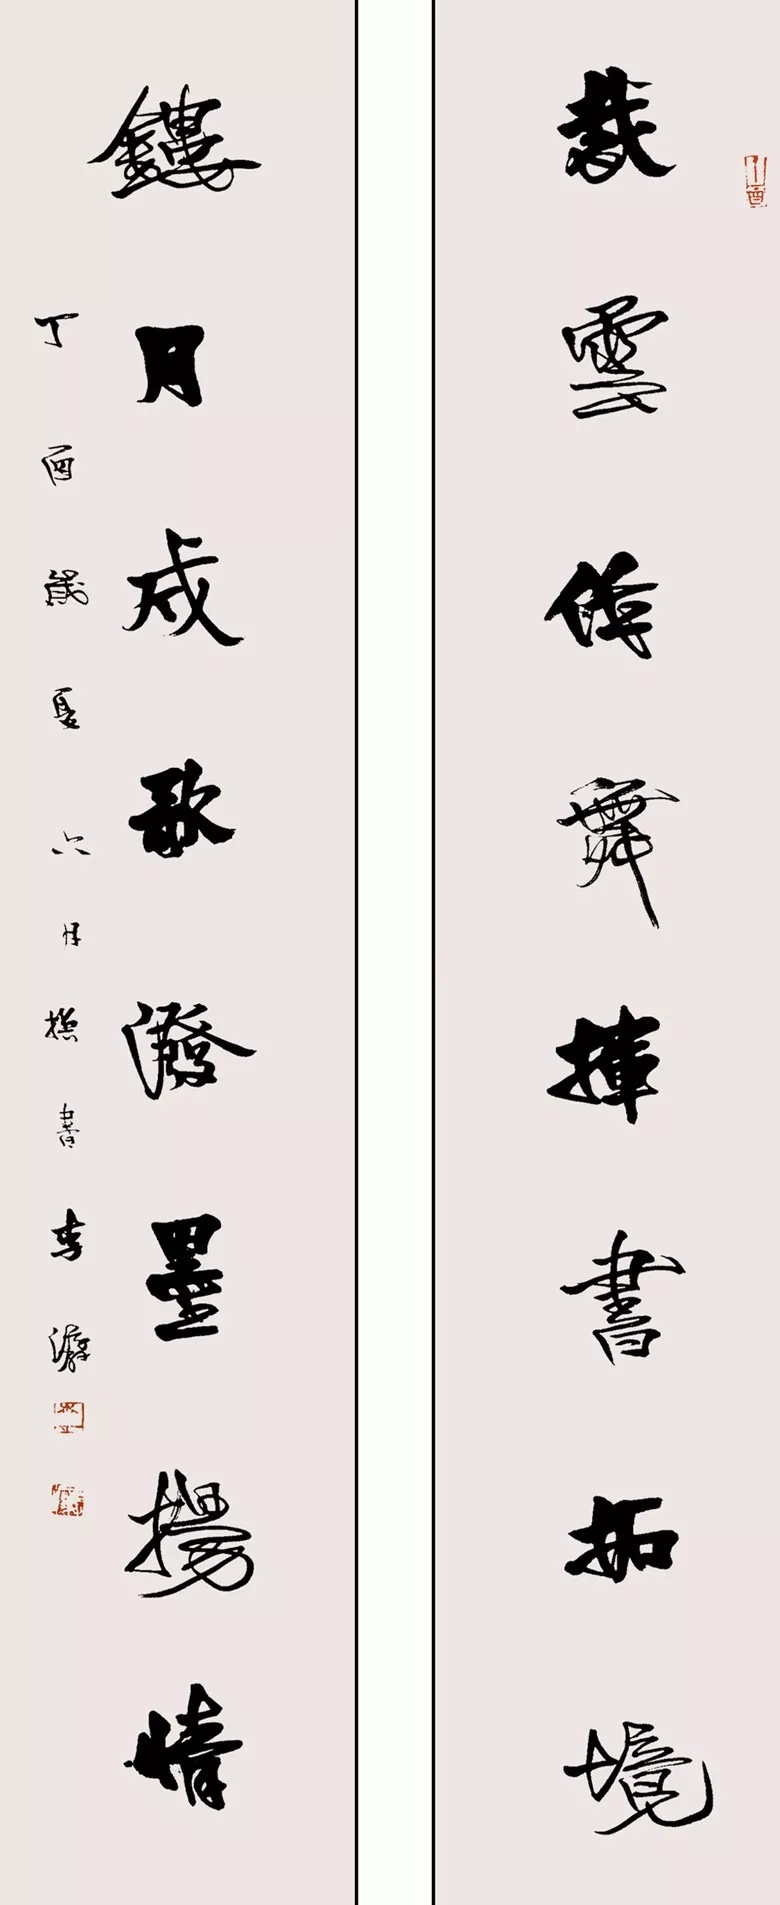 裁雲作舞揮書拓境
鏤月成歌潑墨揚情
丁酉歲夏六月撫書李游
丁酉